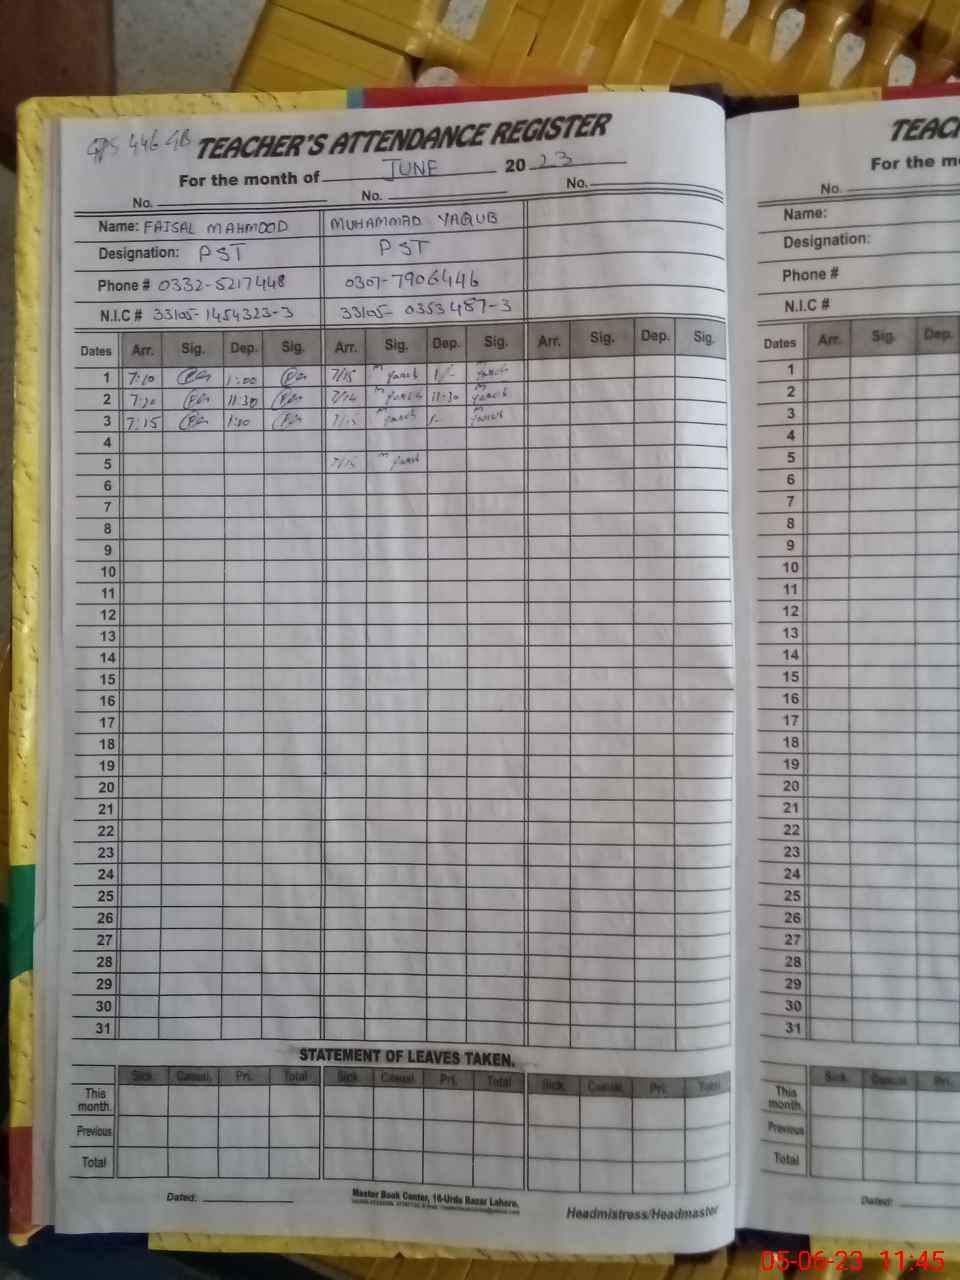 GPS 446 GB TEACHER'S ATTENDANCE REGISTER
For the month of JUNE 20 23
No. No. No.
Name: FAISAL MAHMOOD MUHAMMAD YAQUB
Designation: PST PST
Phone # 0332-5217448 0307-7906446
N.I.C # 33105-1454323-3 33105-0353487-3
Dates Arr. Sig. Dep. Sig. Arr. Sig. Dep. Sig. Arr. Sig. Dep. Sig.
1 7:10 1:00 7/15 1/-
2 7:20 11:30 7/14 11-30
3 7:15 1:00 7/15 1-
4
5 7/15
6
7
8
9
10
11
12
13
14
15
16
17
18
19
20
21
22
23
24
25
26
27
28
29
30
31
STATEMENT OF LEAVES TAKEN.
Sick. Casual. Pri. Total Sick. Casual. Pri. Total Sick. Casual. Pri. Total
This month.
Previous
Total
Dated: Master Book Center, 16-Urdu Bazar Lahore.
Headmistress/Headmaster
TEAC
For the m
No.
Name:
Designation:
Phone #
N.I.C #
Dates Arr. Sig. Dep.
1
2
3
4
5
6
7
8
9
10
11
12
13
14
15
16
17
18
19
20
21
22
23
24
25
26
27
28
29
30
31
Sick. Casual. Pri.
This month.
Previous
Total
Dated:
05-06-23 11:45